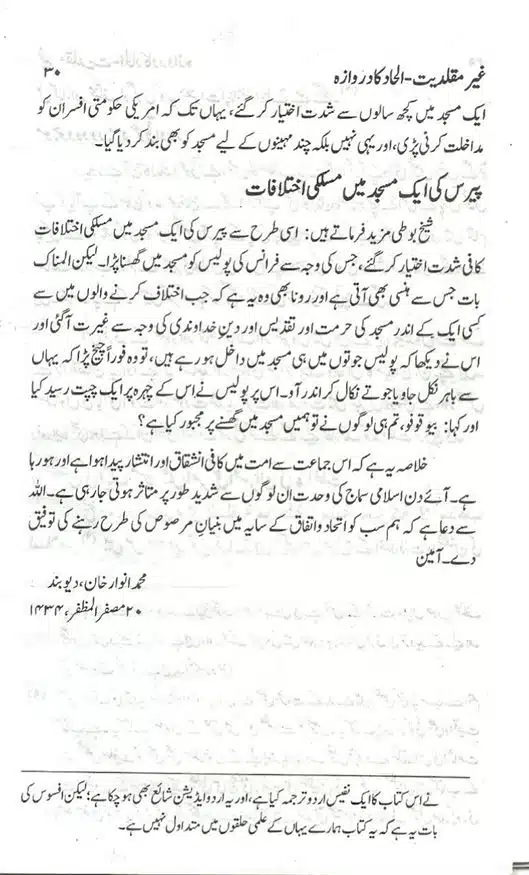 غیر مقلدیت-الحاد کا دروازہ ۳۰
ایک مسجد میں کچھ سالوں سے شدت اختیار کر گئے، یہاں تک کہ امریکی حکومتی افسران کو
مداخلت کرنی پڑی، اور یہی نہیں بلکہ چند مہینوں کے لیے مسجد کو بھی بند کر دیا گیا۔
پیرس کی ایک مسجد میں مسلکی اختلافات
شیخ بوطی مزید فرماتے ہیں: اسی طرح سے پیرس کی ایک مسجد میں مسلکی اختلافات
کافی شدت اختیار کر گئے، جس کی وجہ سے فرانس کی پولیس کو مسجد میں گھسنا پڑا۔ لیکن المناک
بات جس سے ہنسی بھی آتی ہے اور رونا بھی وہ یہ ہے کہ جب اختلاف کرنے والوں میں سے
کسی ایک کے اندر مسجد کی حرمت اور تقدیس اور دینِ خداوندی کی وجہ سے غیرت آگئی اور
اس نے دیکھا کہ پولیس جوتوں میں ہی مسجد میں داخل ہو رہے ہیں، تو وہ فوراً چیخ پڑا کہ یہاں
سے باہر نکل جاو یا جوتے نکال کر اندر آو۔ اس پر پولیس نے اس کے چہرہ پر ایک چپت رسید کیا
اور کہا: بیوقوفو، تم ہی لوگوں نے تو ہمیں مسجد میں گھسنے پر مجبور کیا ہے؟
خلاصہ یہ ہے کہ اس جماعت سے امت میں کافی انشقاق اور انتشار پیدا ہوا ہے اور ہو رہا
ہے۔ آئے دن اسلامی سماج کی وحدت ان لوگوں سے شدید طور پر متاثر ہوتی جا رہی ہے۔ اللہ
سے دعا ہے کہ ہم سب کو اتحاد و اتفاق کے سایہ میں بنیانِ مرصوص کی طرح رہنے کی توفیق
دے۔ آمین
محمد انوار خان، دیوبند
۲۰ صفر المظفر، ۱۴۳۴
نے اس کتاب کا ایک نفیس اردو ترجمہ کیا ہے، اور یہ اردو ایڈیشن شائع بھی ہو چکا ہے؛ لیکن افسوس کی
بات یہ ہے کہ یہ کتاب ہمارے یہاں کے علمی حلقوں میں متداول نہیں ہے۔